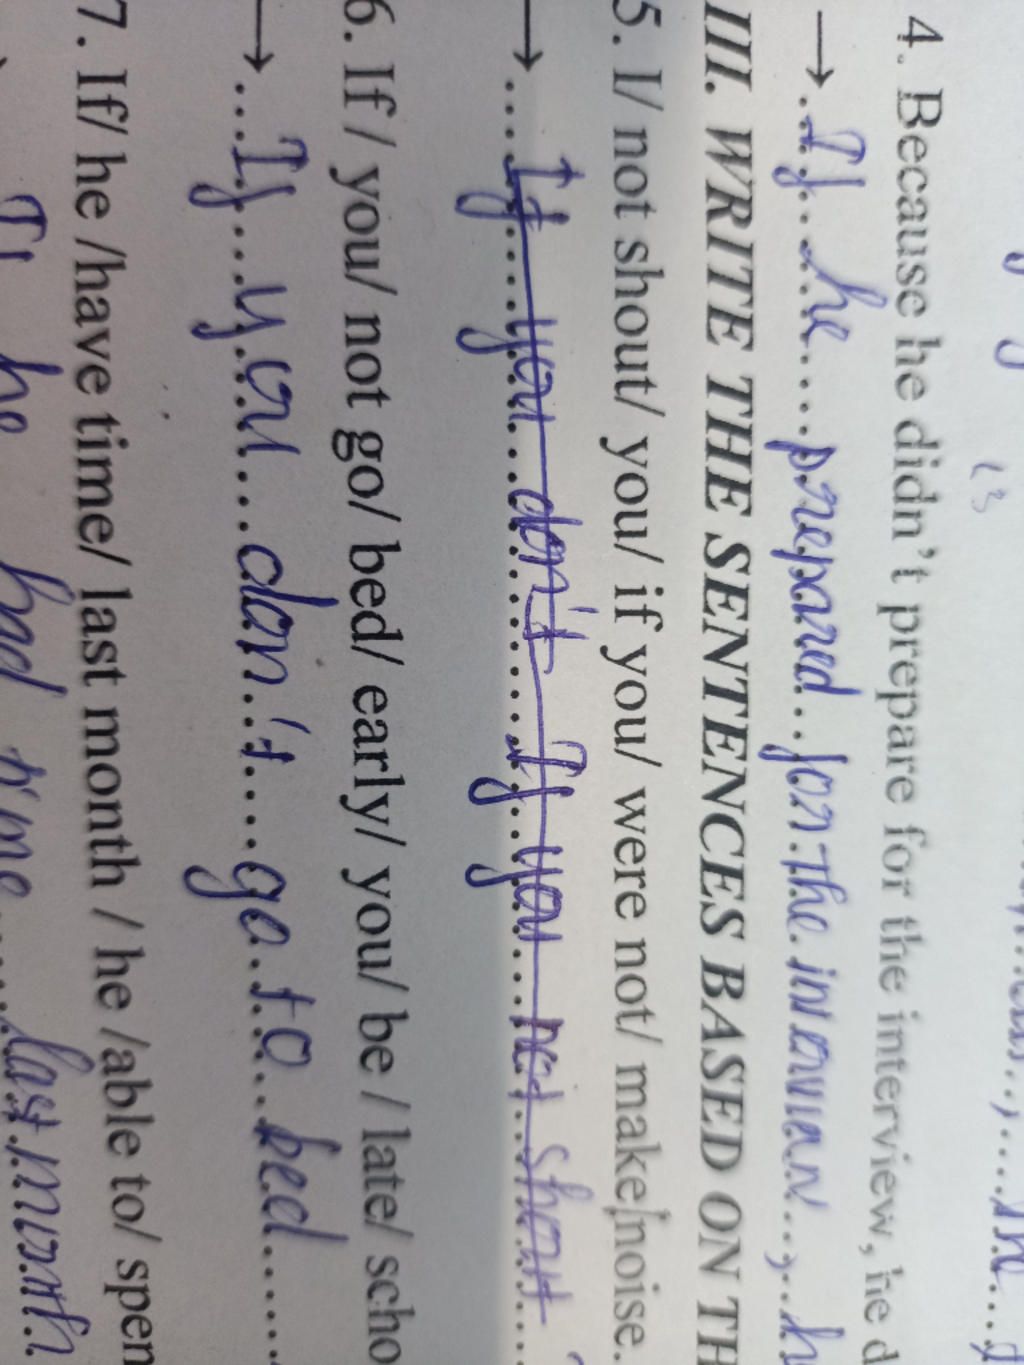 4. Because he didn't prepare for the interview, he d
→ If he prepared for the
III. WRITE THE SENTENCES BASED ON TH
5. I/ not shout/ you/ if you/ were not/ make noise.
→ If you don't If you not shout
6. If / you/ not go/ bed/ early/ you/ be / late/ scho
→ If you don't go to bed
7. If/ he /have time/ last month / he /able to/ spen
If he had time last month